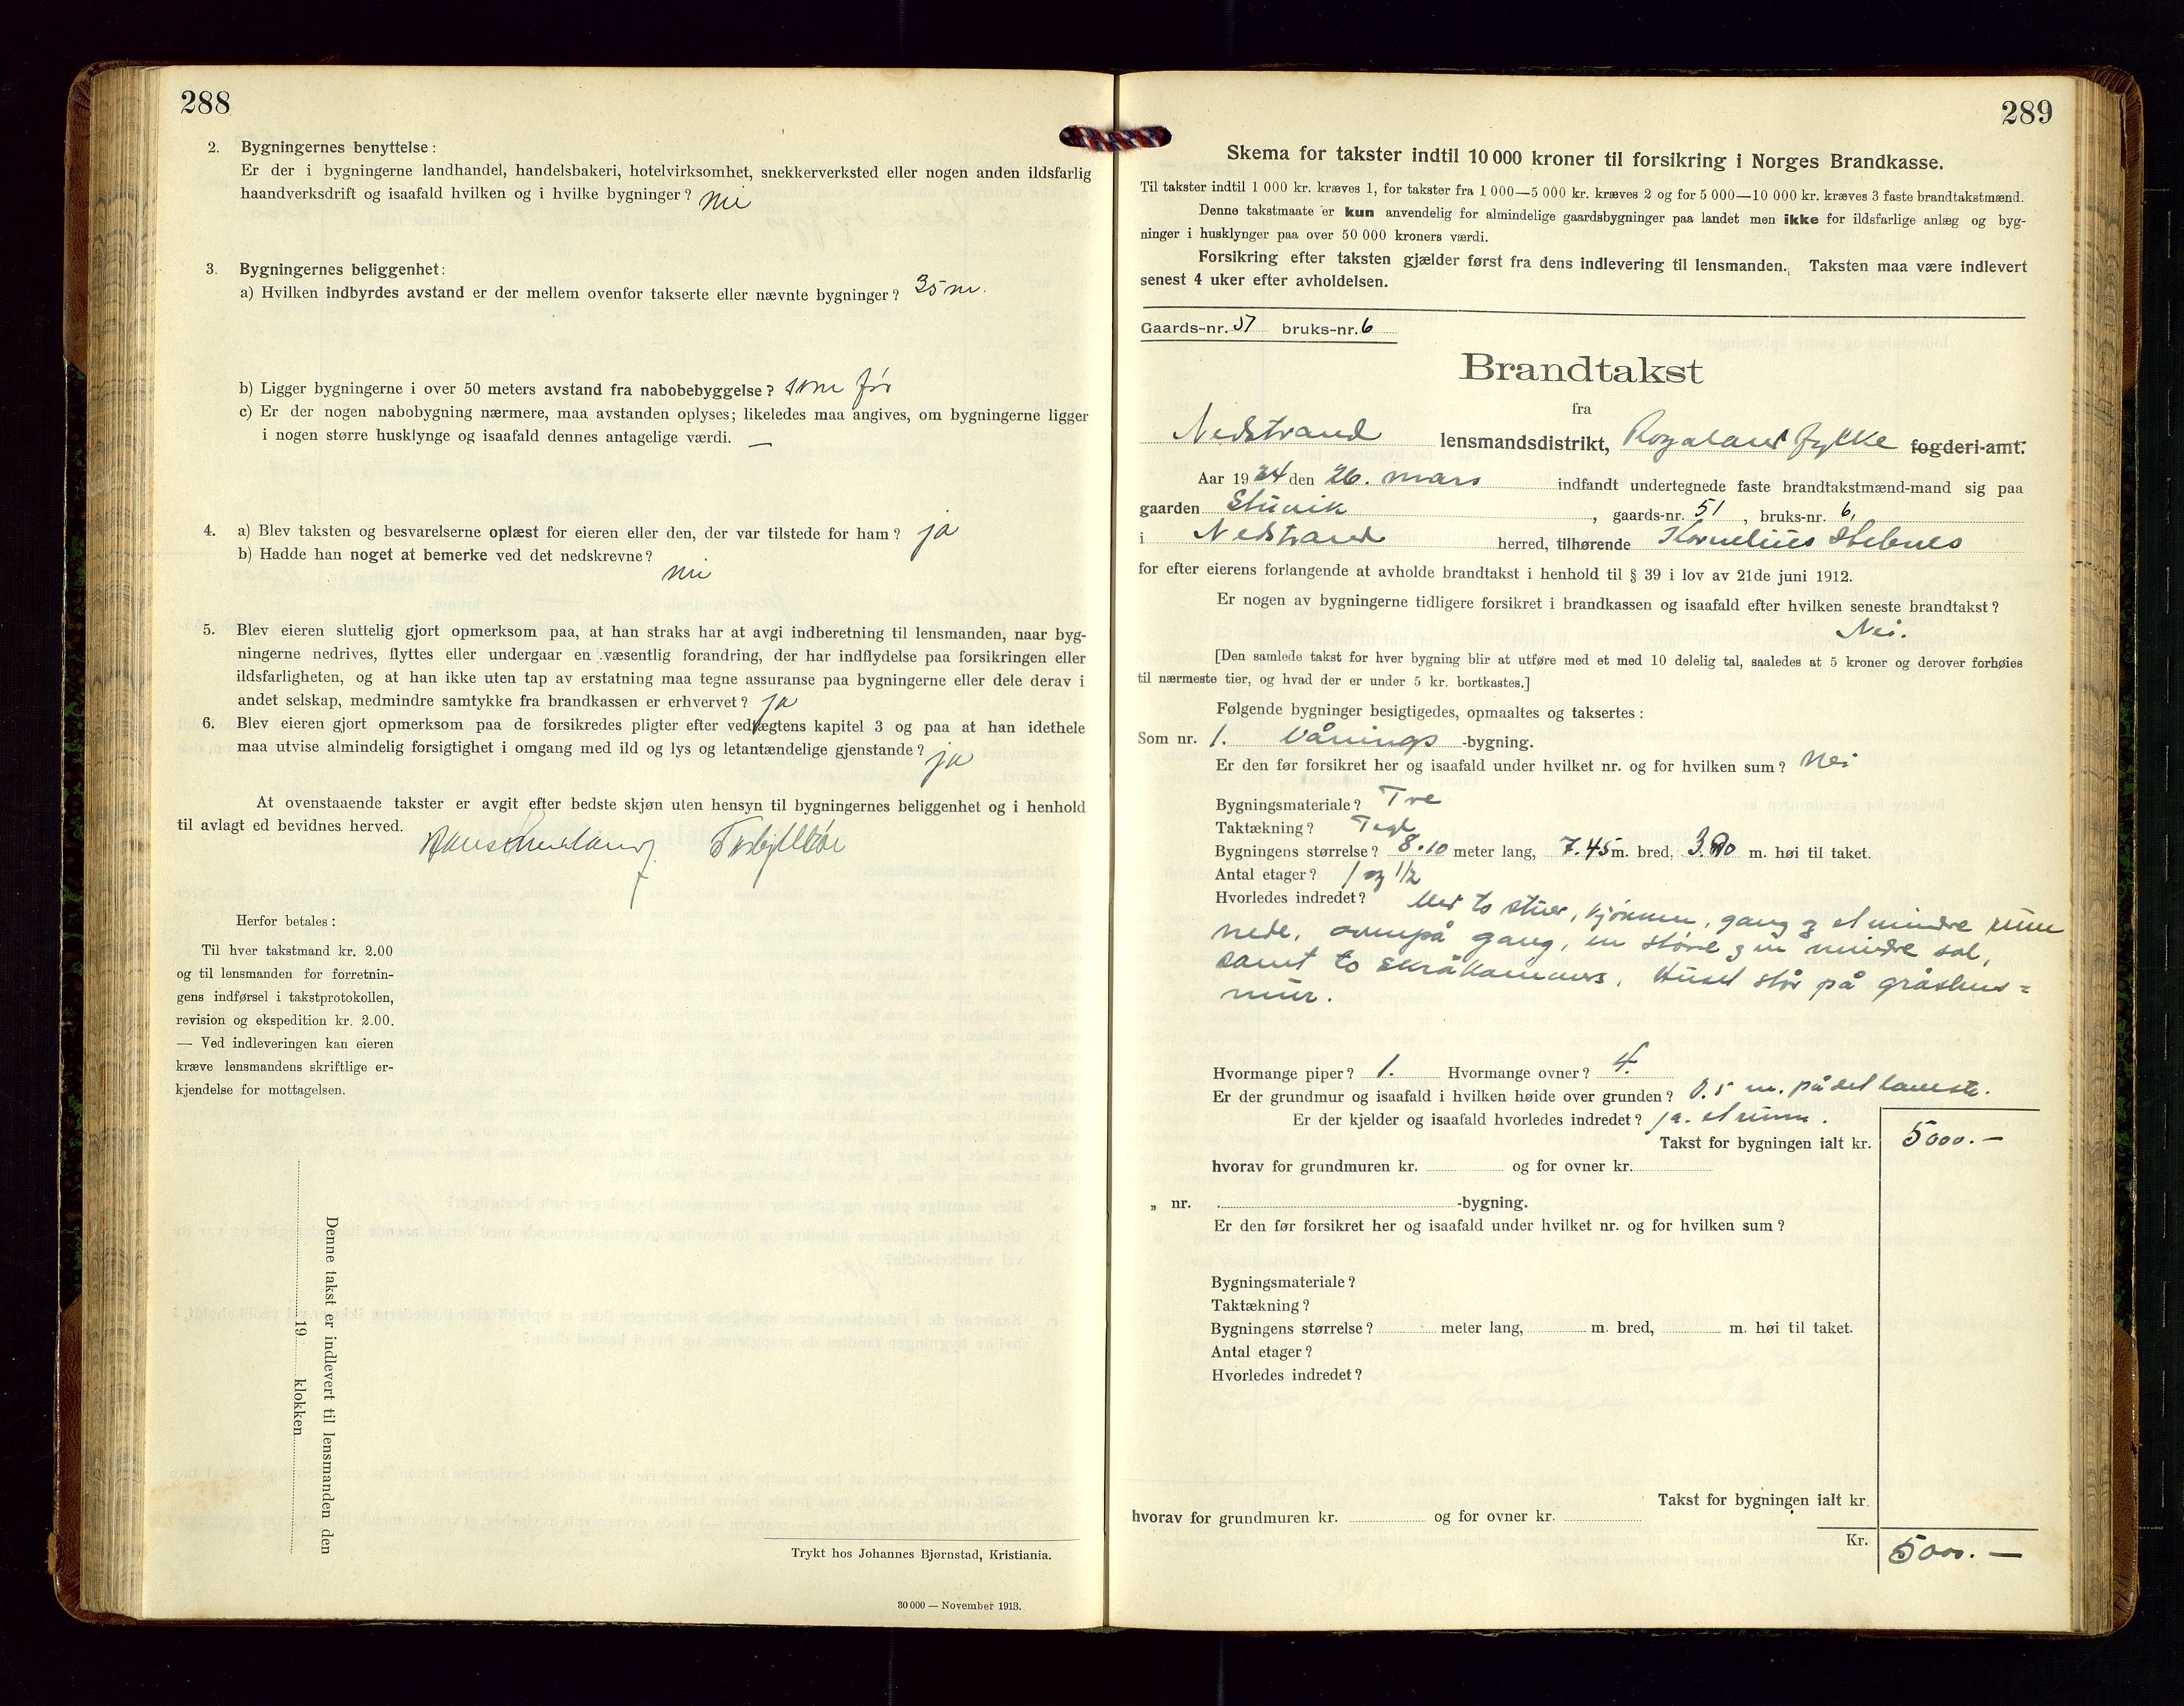 288
2. Bygningernes benyttelse:
Er der i bygningerne landhandel, handelsbakeri, hotelvirksomhet, snekkerverksted eller nogen anden ildsfarlig
haandverksdrift og isaafald hvilken og i hvilke bygninger? nei
3. Bygningernes beliggenhet:
a) Hvilken indbyrdes avstand er der mellem ovenfor takserte eller nævnte bygninger? 35 m.
b) Ligger bygningerne i over 50 meters avstand fra nabobebyggelse? som før
c) Er der nogen nabobygning nærmere, maa avstanden oplyses; likeledes maa angives, om bygningerne ligger
i nogen større husklynge og isaafald dennes antagelige værdi. —
4. a) Blev taksten og besvarelserne oplæst for eieren eller den, der var tilstede for ham? ja
b) Hadde han noget at bemerke ved det nedskrevne?
nei
5. Blev eieren sluttelig gjort opmerksom paa, at han straks har at avgi indberetning til lensmanden, naar byg-
ningerne nedrives, flyttes eller undergaar en væsentlig forandring, der har indflydelse paa forsikringen eller
ildsfarligheten, og at han ikke uten tap av erstatning maa tegne assuranse paa bygningerne eller dele derav i
andet selskap, medmindre samtykke fra brandkassen er erhvervet? ja
6. Blev eieren gjort opmerksom paa de forsikredes pligter efter vedtægtens kapitel 3 og paa at han idethele
maa utvise almindelig forsigtighet i omgang med ild og lys og letantændelige gjenstande? ja
At ovenstaaende takster er avgit efter bedste skjøn uten hensyn til bygningernes beliggenhet og i henhold
til avlagt ed bevidnes herved.
Hans
Herfor betales:
Til hver takstmand kr. 2.00
og til lensmanden for forretnin-
gens indførsel i takstprotokollen,
revision og ekspedition kr. 2.00.
— Ved indleveringen kan eieren
kræve lensmandens skriftlige er-
kjendelse for mottagelsen.
Denne takst er indlevert til lensmanden den
19 klokken
Trykt hos Johannes Bjørnstad, Kristiania.
30 000 — November 1913.
289
Skema for takster indtil 10 000 kroner til forsikring i Norges Brandkasse.
Til takster indtil 1 000 kr. kræves 1, for takster fra 1 000—5 000 kr. kræves 2 og for 5 000—10 000 kr. kræves 3 faste brandtakstmænd.
Denne takstmaate er kun anvendelig for almindelige gaardsbygninger paa landet men ikke for ildsfarlige anlæg og byg-
ninger i husklynger paa over 50 000 kroners værdi.
Forsikring efter taksten gjælder først fra dens indlevering til lensmanden. Taksten maa være indlevert
senest 4 uker efter avholdelsen.
Gaards-nr. 51 bruks-nr. 6
Brandtakst
fra
Nedstrand lensmandsdistrikt, Rogaland fylke fogderi-amt.
Aar 1934 den 26. mars indfandt undertegnede faste brandtakstmænd-mand sig paa
gaarden Stuvik, gaards-nr. 51, bruks-nr. 6,
i Nedstrand herred, tilhørende Kornelius Stebnes
for efter eierens forlangende at avholde brandtakst i henhold til § 39 i lov av 21de juni 1912.
Er nogen av bygningerne tidligere forsikret i brandkassen og isaafald efter hvilken seneste brandtakst?
Nei.
[Den samlede takst for hver bygning blir at utføre med et med 10 delelig tal, saaledes at 5 kroner og derover forhøies
til nærmeste tier, og hvad der er under 5 kr. bortkastes.]
Følgende bygninger besigtigedes, opmaaltes og taksertes:
Som nr. 1. Vånings-bygning.
Er den før forsikret her og isaafald under hvilket nr. og for hvilken sum? Nei
Bygningsmateriale? Tre
Taktækning? Tegl
Bygningens størrelse? 8.10 meter lang, 7.45 m. bred, 3.90 m. høi til taket.
Antal etager? 1 og 1/2
Hvorledes indredet? Med to stuer, kjøkken, gang og et mindre rum
nede, ovenpå gang, en større og en mindre sal,
samt to skråkammers. Huset står på gråstens=
mur.
Hvormange piper? 1. Hvormange ovner? 4.
Er der grundmur og isaafald i hvilken høide over grunden? 0.5 m. på det laveste.
Er der kjelder og isaafald hvorledes indredet? ja. et rum.
Takst for bygningen ialt kr. 5000.—
hvorav for grundmuren kr. og for ovner kr.
„ nr. -bygning.
Er den før forsikret her og isaafald under hvilket nr. og for hvilken sum?
Bygningsmateriale?
Taktækning?
Bygningens størrelse? meter lang, m. bred, m. høi til taket.
Antal etager?
Hvorledes indredet?
Takst for bygningen ialt kr.
hvorav for grundmuren kr. og for ovner kr.
Kr. 5000.—